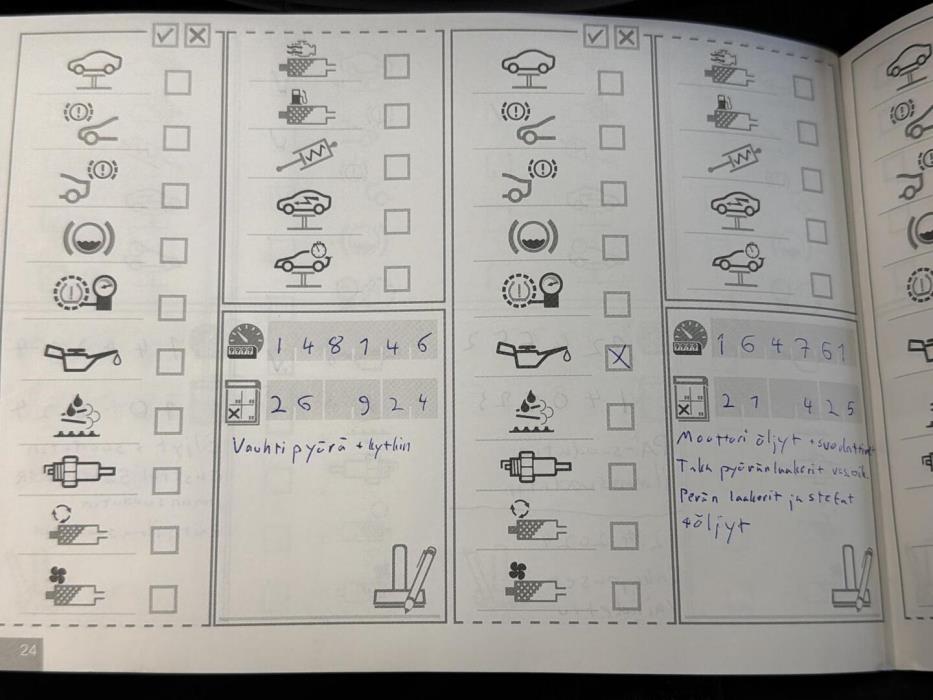 1 4 8 1 4 6
2 6 9 2 4
Vauhti pyörä + kytkin
X
1 6 4 7 6 1
2 1 4 2 5
Moottori öljyt + suodattimet
Taka pyörän laakerit vas oik
Perän laakerit ja stefat
+ öljyt
24